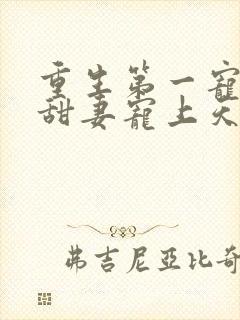 重生第一寵
甜妻寵上天
弗吉尼亞比奇